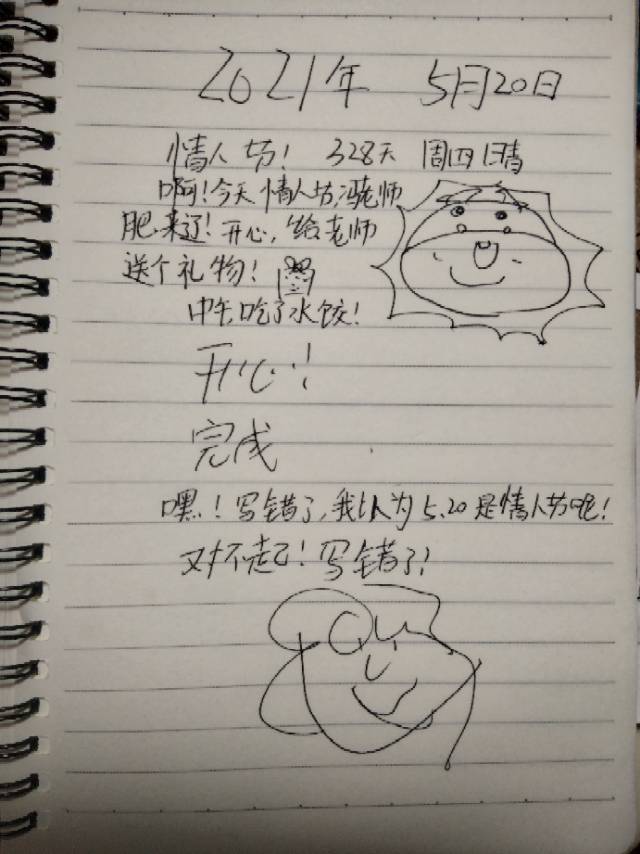 2021年 5月20日
情人节! 328天 周四 晴
啊!今天情人节,冯老师
肥来辽!开心,给老师
送个礼物!
中午吃了水饺!
开心!
完成
嘿!写错了,我以为5.20是情人节呢!
对不起!写错了!